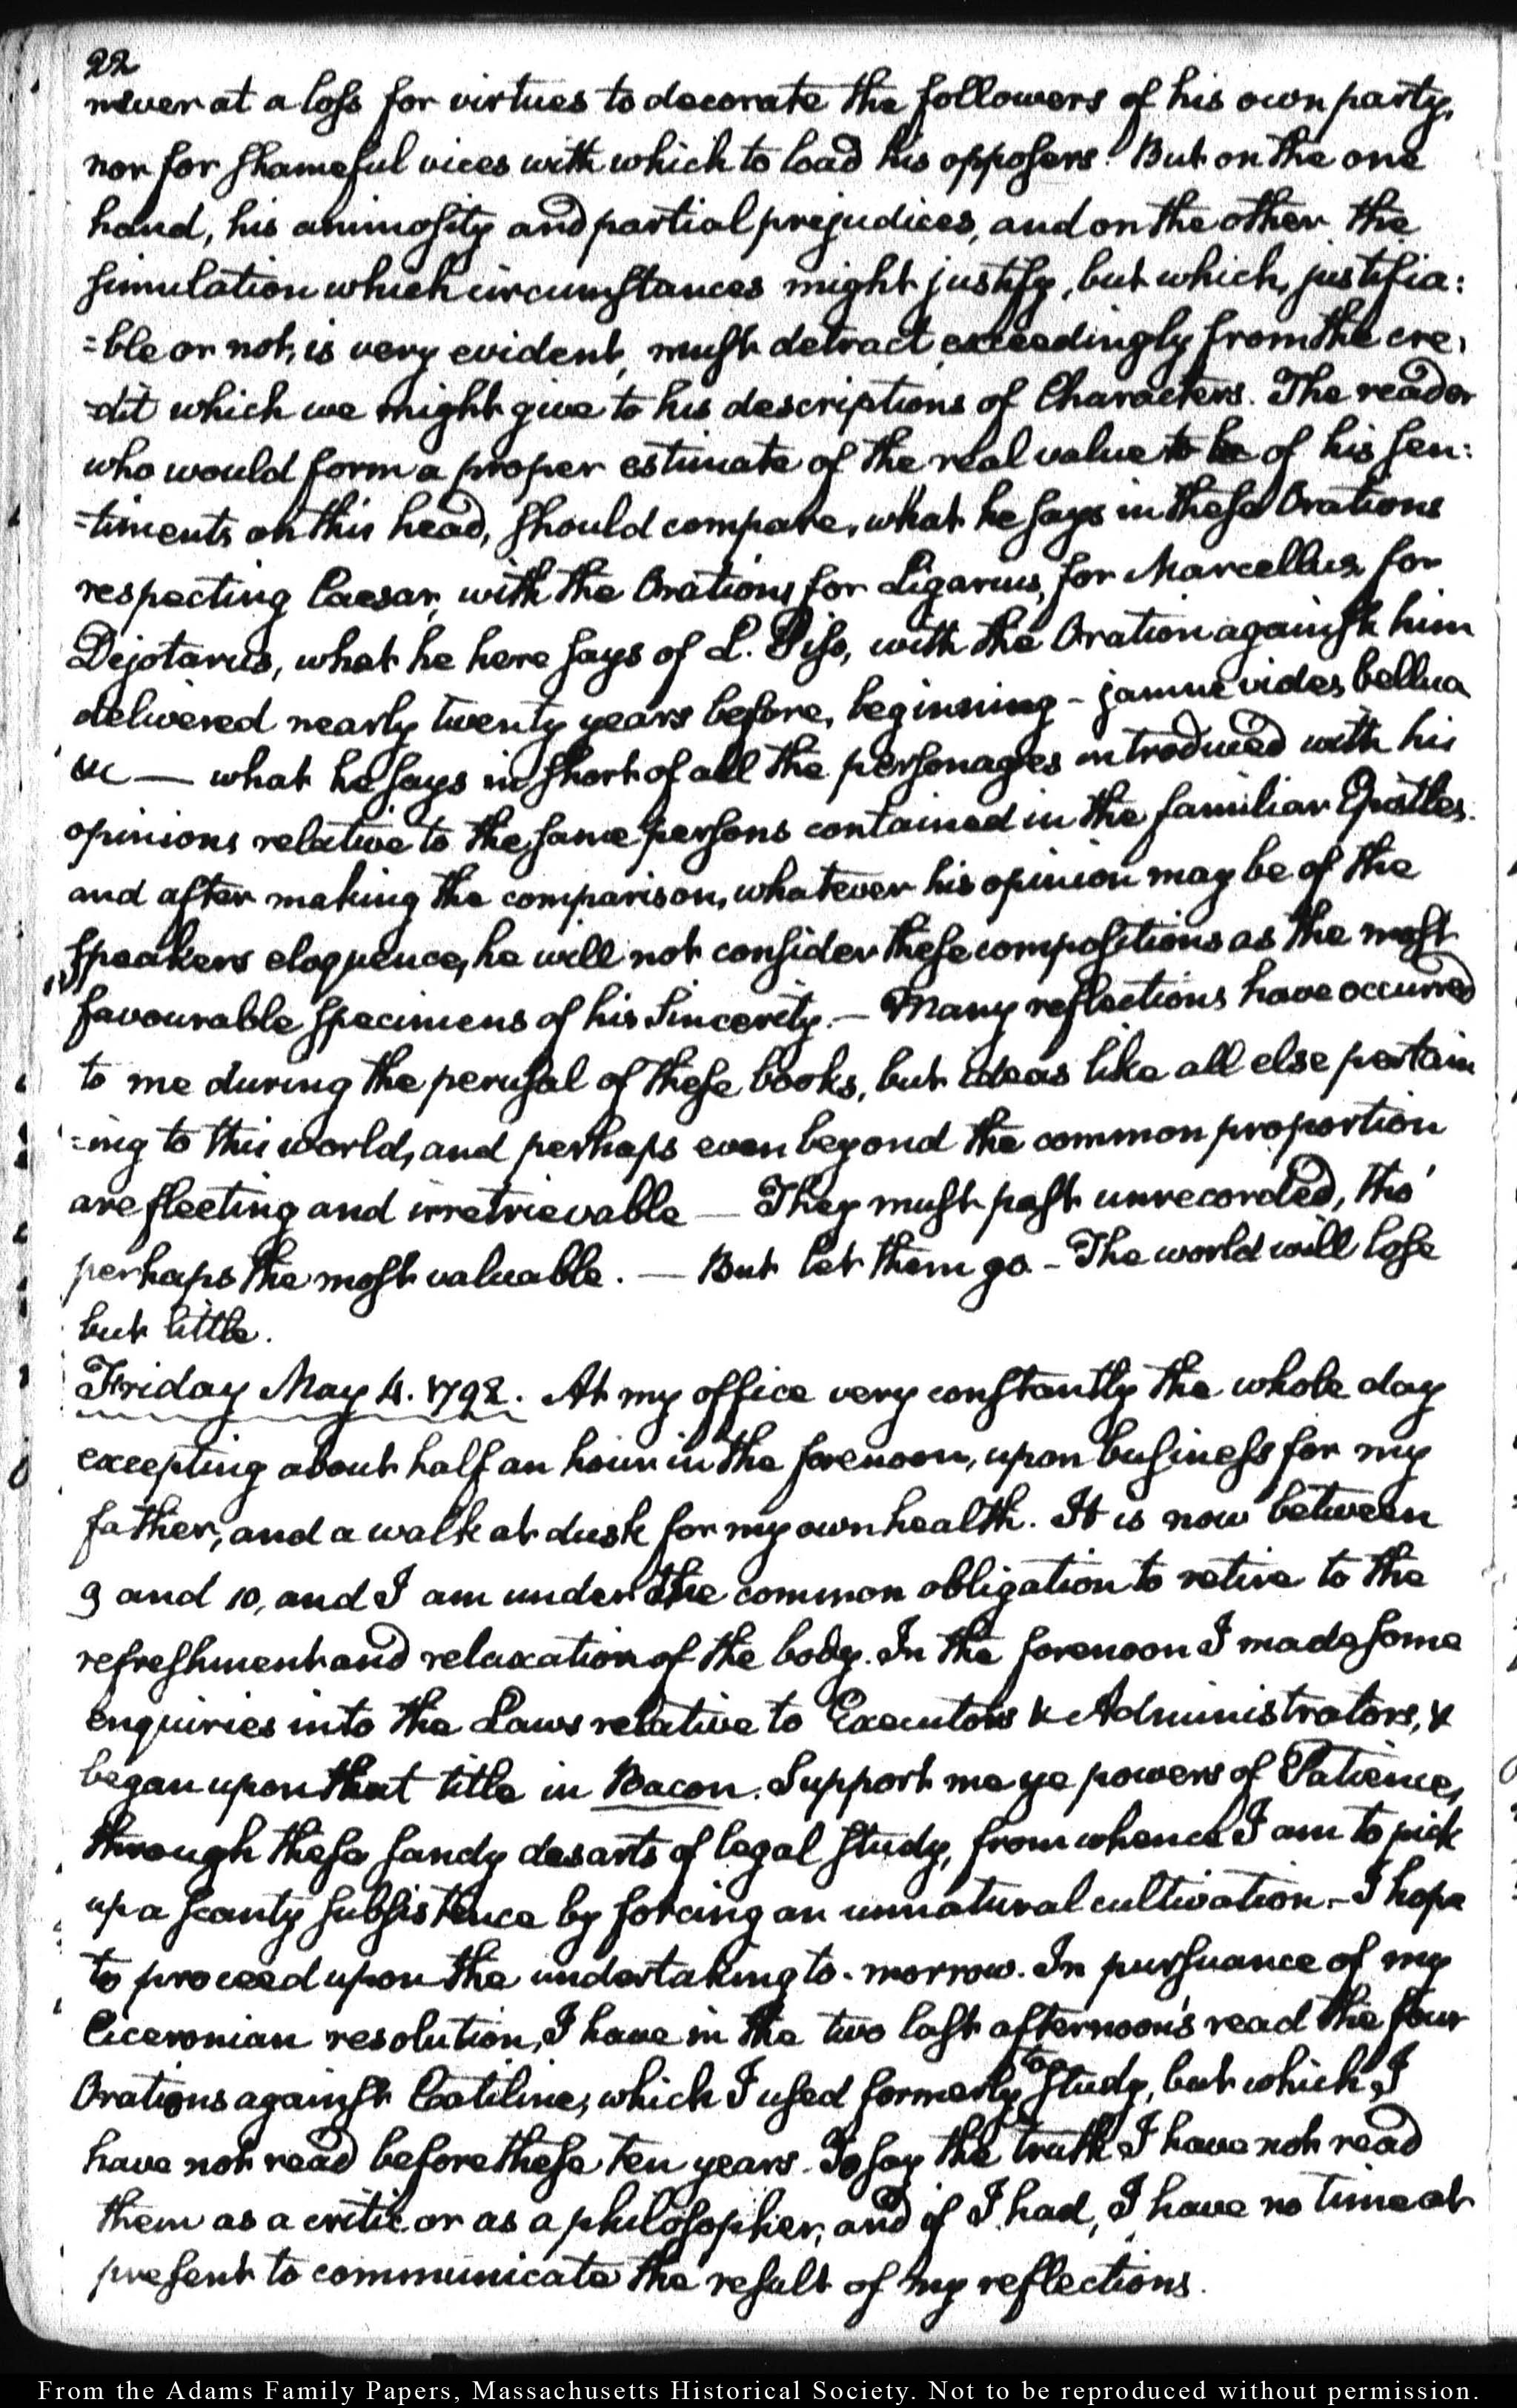 22
never at a loss for virtues to decorate the followers of his own party,
nor for shameful vices with which to load his opposers! But on the one
hand, his animosity and partial prejudices, and on the other the
simulation which circumstances might justify, but which, justifia:
=ble or not, is very evident, must detract exceedingly from the cre:
-dit which we might give to his descriptions of Characters. The reader
who would form a proper estimate of the real value to be of his sen:
=timents on this head, should compare, what he says in these Orations
respecting Caesar, with the Orations for Ligarius, for Marcellus, for
Dejotarus, what he here says of L. Piso, with the Oration against him
delivered nearly twenty years before, beginning - jamne vides bellua
&c — what he says in short of all the personages introduced with his
opinions relative to the same persons contained in the familiar Epistles.
and after making the comparison, whatever his opinion may be of the
speakers eloquence, he will not consider these compositions as the most
favourable specimens of his Sincerity. — Many reflections have occurred
to me during the perusal of these books, but ideas like all else pertain
=ing to this world, and perhaps even beyond the common proportion
are fleeting and irretrievable — They must past unrecorded, tho'
perhaps the most valuable. — But let them go. - The world will lose
but little.
Friday May 4. 1792. At my office very constantly the whole day
excepting about half an hour in the forenoon, upon business for my
father, and a walk at dusk for my own health. It is now between
9 and 10, and I am under the common obligation to retire to the
refreshment and relaxation of the body. In the forenoon I made some
enquiries into the Laws relative to Executors & Administrators, &
began upon that title in Bacon. Support me ye powers of Patience,
through these sandy desarts of legal study, from whence I am to pick
up a scanty subsistence by forcing an unnatural cultivation. - I hope
to proceed upon the undertaking to-morrow. In pursuance of my
Ciceronian resolution, I have in the two last afternoon's read the four
Orations against Catiline, which I used formerly to study, but which I
have not read before these ten years. To say the truth I have not read
them as a critic or as a philosopher, and if I had, I have no time at
present to communicate the result of my reflections.
From the Adams Family Papers, Massachusetts Historical Society. Not to be reproduced without permission.